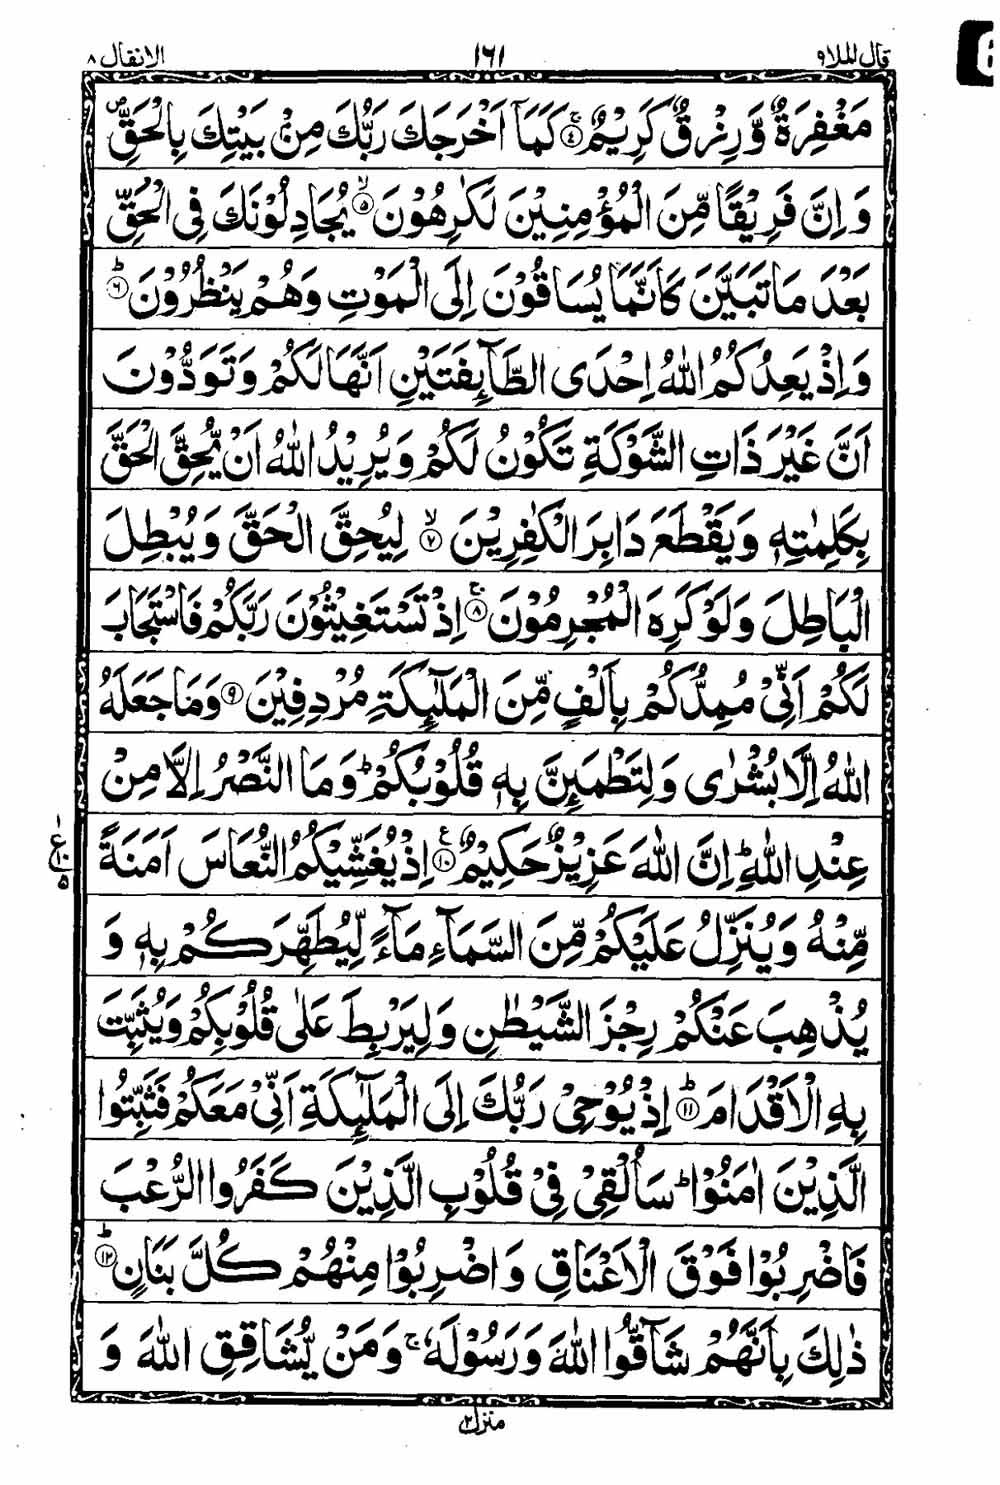 قال الملا ٩ ١٦١ الانفال ٨
مَغْفِرَةٌ وَّرِزْقٌ كَرِيْمٌ ۚ﴿٤﴾ كَمَاۤ اَخْرَجَكَ رَبُّكَ مِنْۢ بَيْتِكَ بِالْحَقِّ ۪
وَاِنَّ فَرِيْقًا مِّنَ الْمُؤْمِنِيْنَ لَكٰرِهُوْنَ ۙ﴿٥﴾ يُجَادِلُوْنَكَ فِى الْحَقِّ
بَعْدَ مَا تَبَيَّنَ كَاَنَّمَا يُسَاقُوْنَ اِلَى الْمَوْتِ وَهُمْ يَنْظُرُوْنَ ؕ﴿٦﴾
وَاِذْ يَعِدُكُمُ اللّٰهُ اِحْدَى الطَّآئِفَتَيْنِ اَنَّهَا لَكُمْ وَتَوَدُّوْنَ
اَنَّ غَيْرَ ذَاتِ الشَّوْكَةِ تَكُوْنُ لَكُمْ وَيُرِيْدُ اللّٰهُ اَنْ يُّحِقَّ الْحَقَّ
بِكَلِمٰتِهٖ وَيَقْطَعَ دَابِرَ الْكٰفِرِيْنَ ۙ﴿٧﴾ لِيُحِقَّ الْحَقَّ وَيُبْطِلَ
الْبَاطِلَ وَلَوْ كَرِهَ الْمُجْرِمُوْنَ ۚ﴿٨﴾ اِذْ تَسْتَغِيْثُوْنَ رَبَّكُمْ فَاسْتَجَابَ
لَكُمْ اَنِّىْ مُمِدُّكُمْ بِاَلْفٍ مِّنَ الْمَلٰٓئِكَةِ مُرْدِفِيْنَ ﴿٩﴾ وَمَا جَعَلَهُ
اللّٰهُ اِلَّا بُشْرٰى وَلِتَطْمَئِنَّ بِهٖ قُلُوْبُكُمْ ؕ وَمَا النَّصْرُ اِلَّا مِنْ
عِنْدِ اللّٰهِ ؕ اِنَّ اللّٰهَ عَزِيْزٌ حَكِيْمٌ ﴿١٠﴾ اِذْ يُغَشِّيْكُمُ النُّعَاسَ اَمَنَةً
١ ع ١٠ ٥
مِّنْهُ وَيُنَزِّلُ عَلَيْكُمْ مِّنَ السَّمَآءِ مَآءً لِّيُطَهِّرَكُمْ بِهٖ وَ
يُذْهِبَ عَنْكُمْ رِجْزَ الشَّيْطٰنِ وَلِيَرْبِطَ عَلٰى قُلُوْبِكُمْ وَيُثَبِّتَ
بِهِ الْاَقْدَامَ ؕ﴿١١﴾ اِذْ يُوْحِىْ رَبُّكَ اِلَى الْمَلٰٓئِكَةِ اَنِّىْ مَعَكُمْ فَثَبِّتُوا
الَّذِيْنَ اٰمَنُوْا ؕ سَاُلْقِىْ فِىْ قُلُوْبِ الَّذِيْنَ كَفَرُوا الرُّعْبَ
فَاضْرِبُوْا فَوْقَ الْاَعْنَاقِ وَاضْرِبُوْا مِنْهُمْ كُلَّ بَنَانٍ ؕ﴿١٢﴾
ذٰلِكَ بِاَنَّهُمْ شَآقُّوا اللّٰهَ وَرَسُوْلَهٗ ۚ وَمَنْ يُّشَاقِقِ اللّٰهَ وَ
منزل ٢